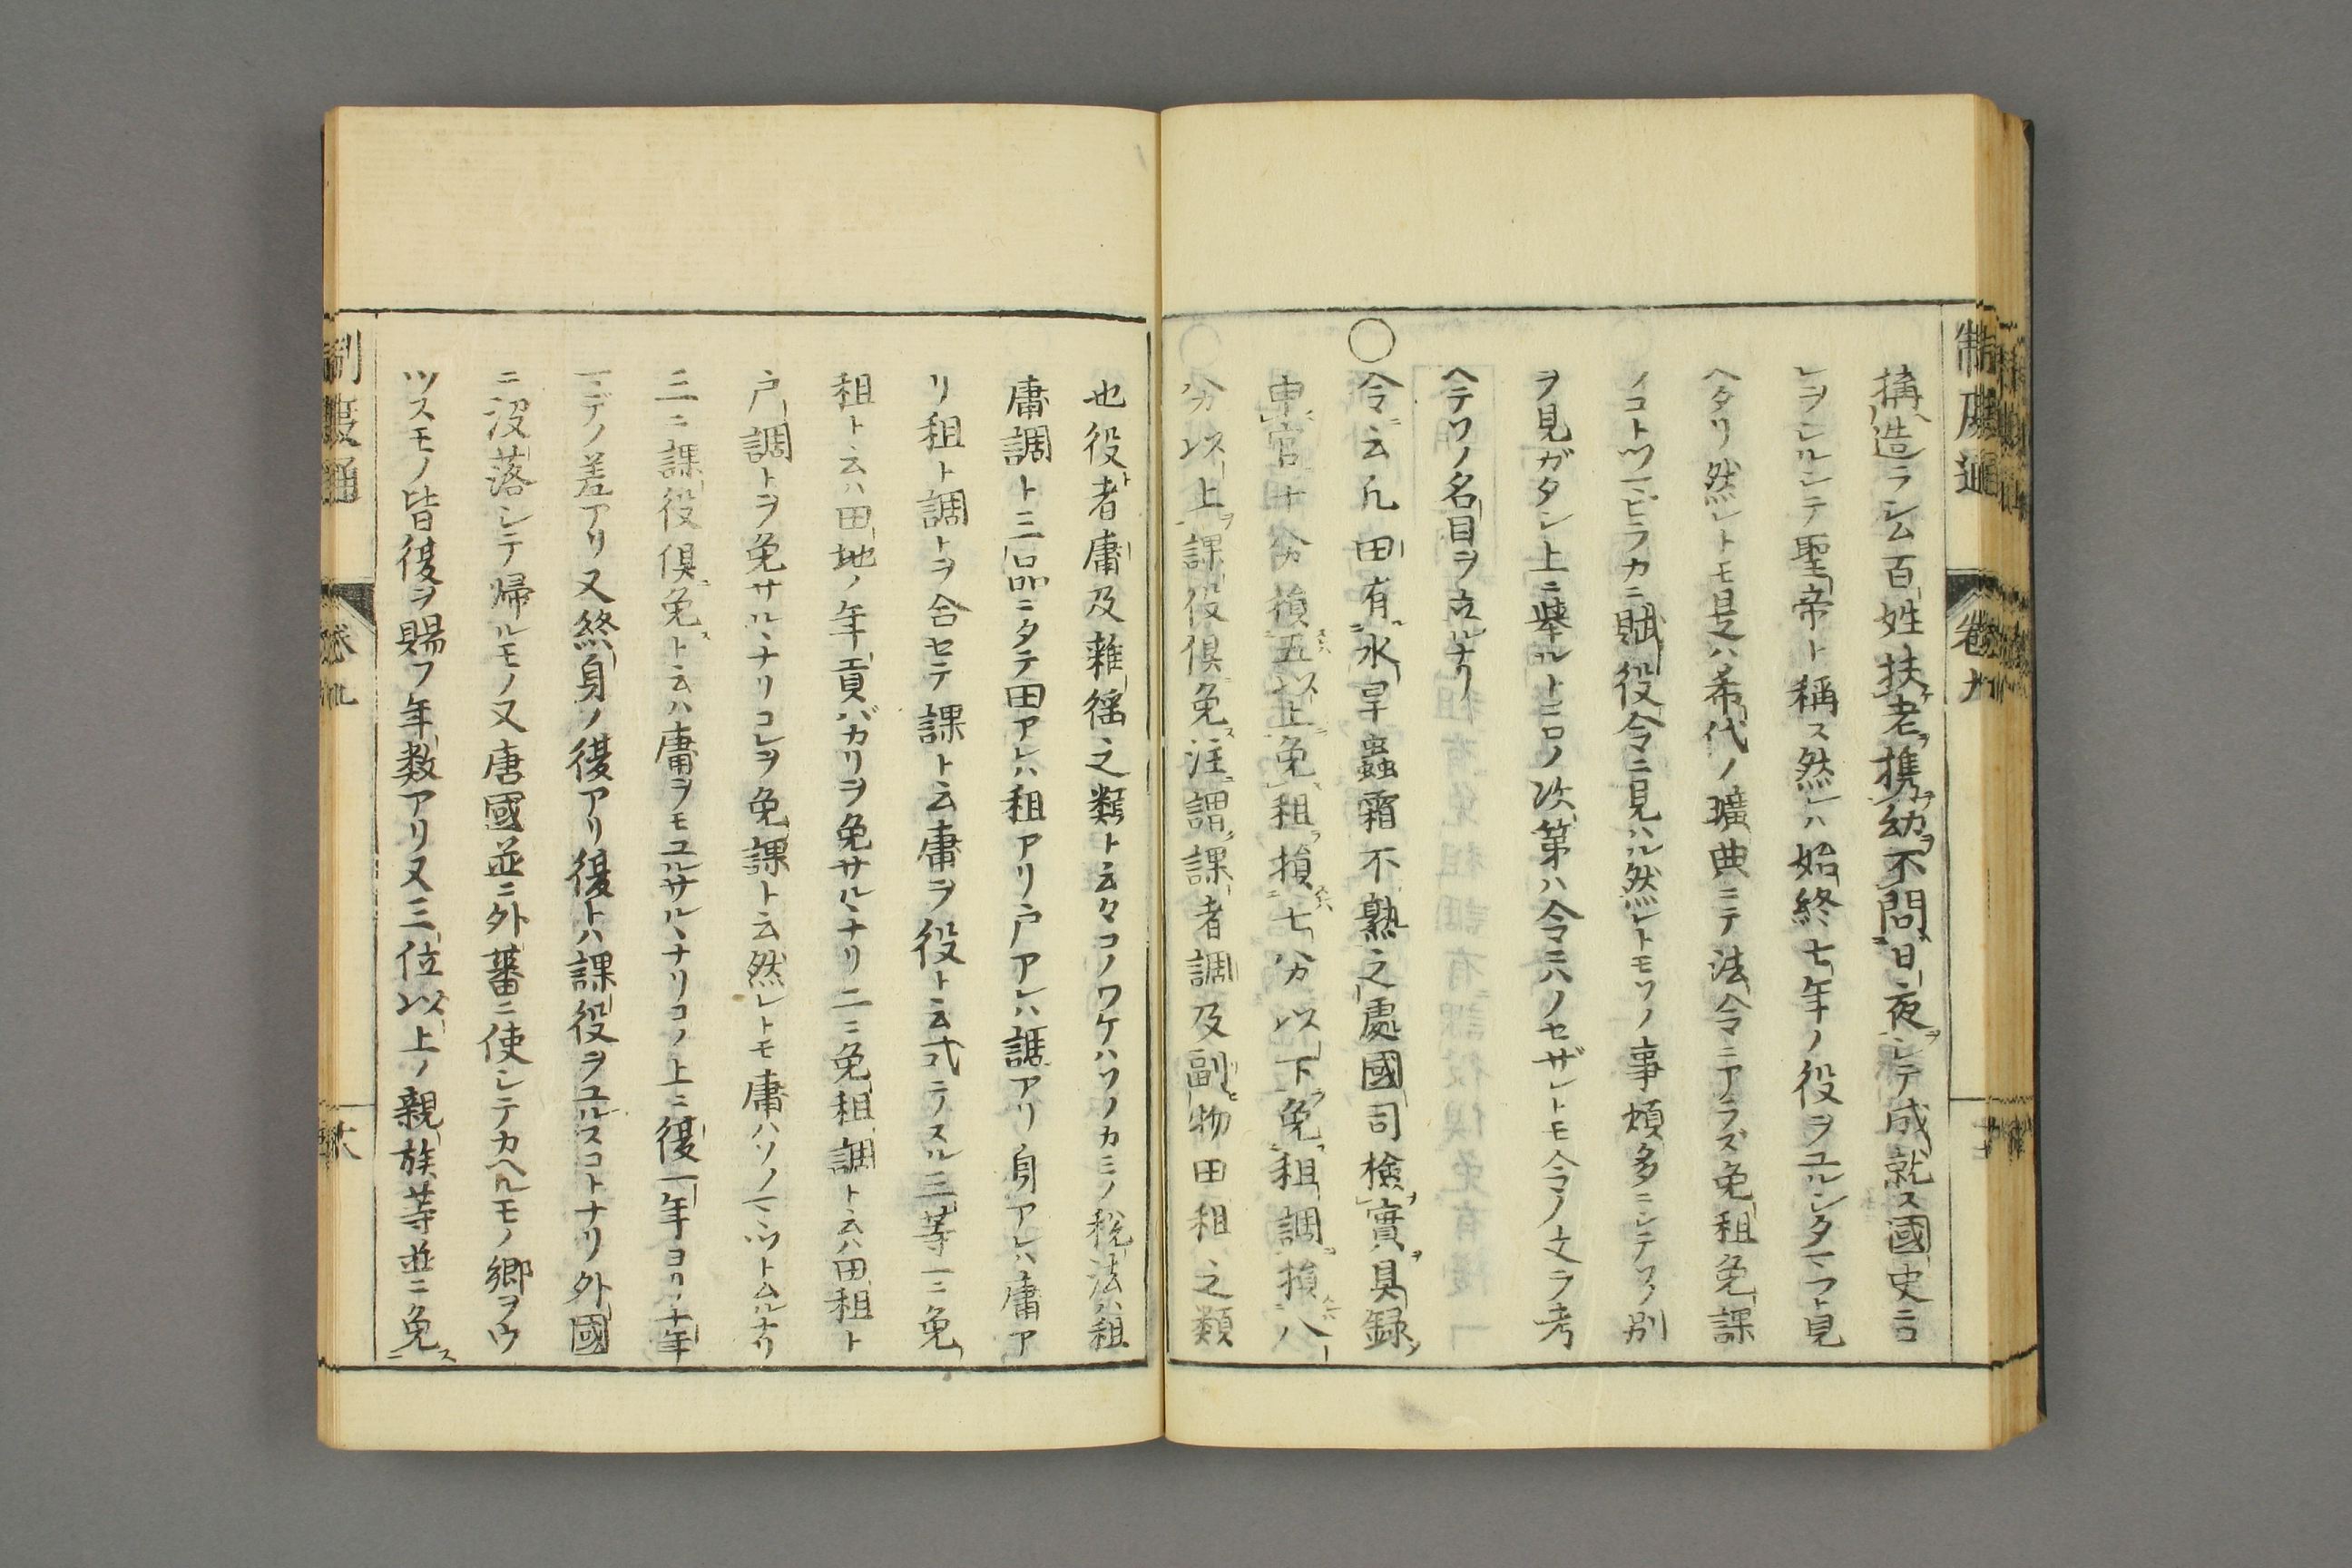 制度通 卷九
搆造ラシム百姓扶老携幼不問日夜シテ成就ス國史ニコ
レヲシルシテ聖帝ト稱ス然レハ始終七年ノ役ヲユルシタマフト見
ヘタリ然レトモ是ハ希代ノ曠典ニテ法令ニアラズ免租免課
ノコトツマビラカニ賦役令ニ見ハル然レトモソノ事煩多ニシテソノ別
ヲ見ガタシ上ニ舉ルトコロノ次第ハ令ニハノセザレトモ令ノ文ヲ考
ヘテソノ名目ヲ立ルナリ
〇令ニ云凡田有水旱蟲霜不熟之處國司檢實具録
申官十分損五以上免租損七分以下免租調損八
分以上課役俱免注謂課者調及副物田租之類
也役者庸及雜徭之類ト云々コノワケハソノカミノ税法ハ租
庸調ト三品ニタテ田アレハ租アリ戸アレハ調アリ身アレハ庸ア
リ租ト調トヲ合セテ課ト云庸ヲ役ト云式ニノスル三等一ニ免
租ト云ハ田地ノ年貢バカリヲ免サルヽナリ二ニ免租調ト云ハ田租ト
戸調トヲ免サルヽナリコレヲ免課ト云然レトモ庸ハソノマヽツトムルナリ
三ニ課役俱免ト云ハ庸ヲモユルサルヽナリコノ上ニ復一年ヨリ十年
マデノ差アリ又終身ノ復アリ復トハ課役ヲユルスコトナリ外國
ニ沒落シテ帰ルモノ又唐國並ニ外蕃ニ使シテカヘルモノ郷ヲウ
ツスモノ皆復ヲ賜フ年数アリ又三位以上ノ親族等並ニ免
制度通 卷九